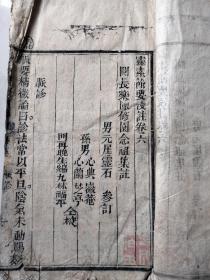 靈素節要淺註卷六
閩長樂陳修園念祖集註
男元犀靈石 參訂
孫男心典徽菴
心蘭芝亭
仝校
脈診
要精微論曰診法常以平旦陰氣未動陽